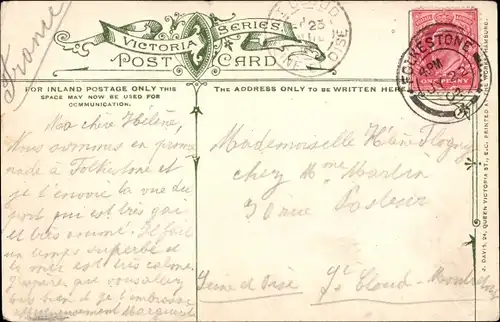 France
VICTORIA SERIES
POST CARD
FOR INLAND POSTAGE ONLY THIS
SPACE MAY NOW BE USED FOR
COMMUNICATION.
THE ADDRESS ONLY TO BE WRITTEN HERE
FOLKESTONE
PM
02
ONE PENNY
23
OISE
Ma chère Hélène,
Nous sommes en prome
nade à Folkestone et
je t'envoie la vue du
port qui est très gai
et très animé. Il fait
un temps superbe et
la mer est très calme.
J'espère que vous allez
bien et je t'embrasse
affectueusement Marguerite
Mademoiselle Hélène Flogny
chez Mme Martin
30 rue Pasteur
Seine et Oise St Cloud - Montretout
J. DAVIS, 24, QUEEN VICTORIA ST., E.C. PRINTED AT HAMBURG.